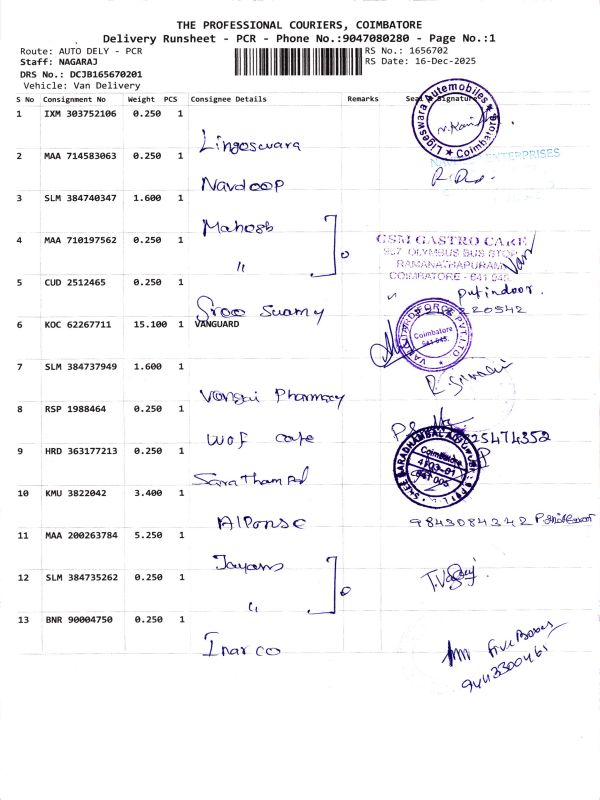 THE PROFESSIONAL COURIERS, COIMBATORE
Delivery Runsheet - PCR - Phone No.:9047080280 - Page No.:1
Route: AUTO DELY - PCR
RS No.: 1656702
Staff: NAGARAJ
RS Date: 16-Dec-2025
DRS No.: DCJB165670201
Vehicle: Van Delivery
S No Consignment No Weight PCS Consignee Details Remarks Seal Signature
1 IXM 303752106 0.250 1
Lingeswara
Ligeswara Automobiles
Coimbatore
2 MAA 714583063 0.250 1
ENTERPRISES
Navdeep
3 SLM 384740347 1.600 1
Mahesh
4 MAA 710197562 0.250 1
〃
GSM GASTRO CARE
957 OLYMBUS BUS STOP
RAMANATHAPURAM
COIMBATORE - 641 045
5 CUD 2512465 0.250 1
Sree Swamy
6 KOC 62267711 15.100 1 VANGUARD
Coimbatore
641 045.
7 SLM 384737949 1.600 1
Pharmacy
8 RSP 1988464 0.250 1
wof cafe
9 HRD 363177213 0.250 1
Coimbatore
641 005
10 KMU 3822042 3.400 1
Alponse
9843084342
11 MAA 200263784 5.250 1
12 SLM 384735262 0.250 1
〃
13 BNR 90004750 0.250 1
Inarco
Five Boxes
9443300461